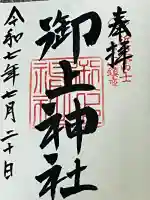 奉拝
御上神社
令和七年七月二十日